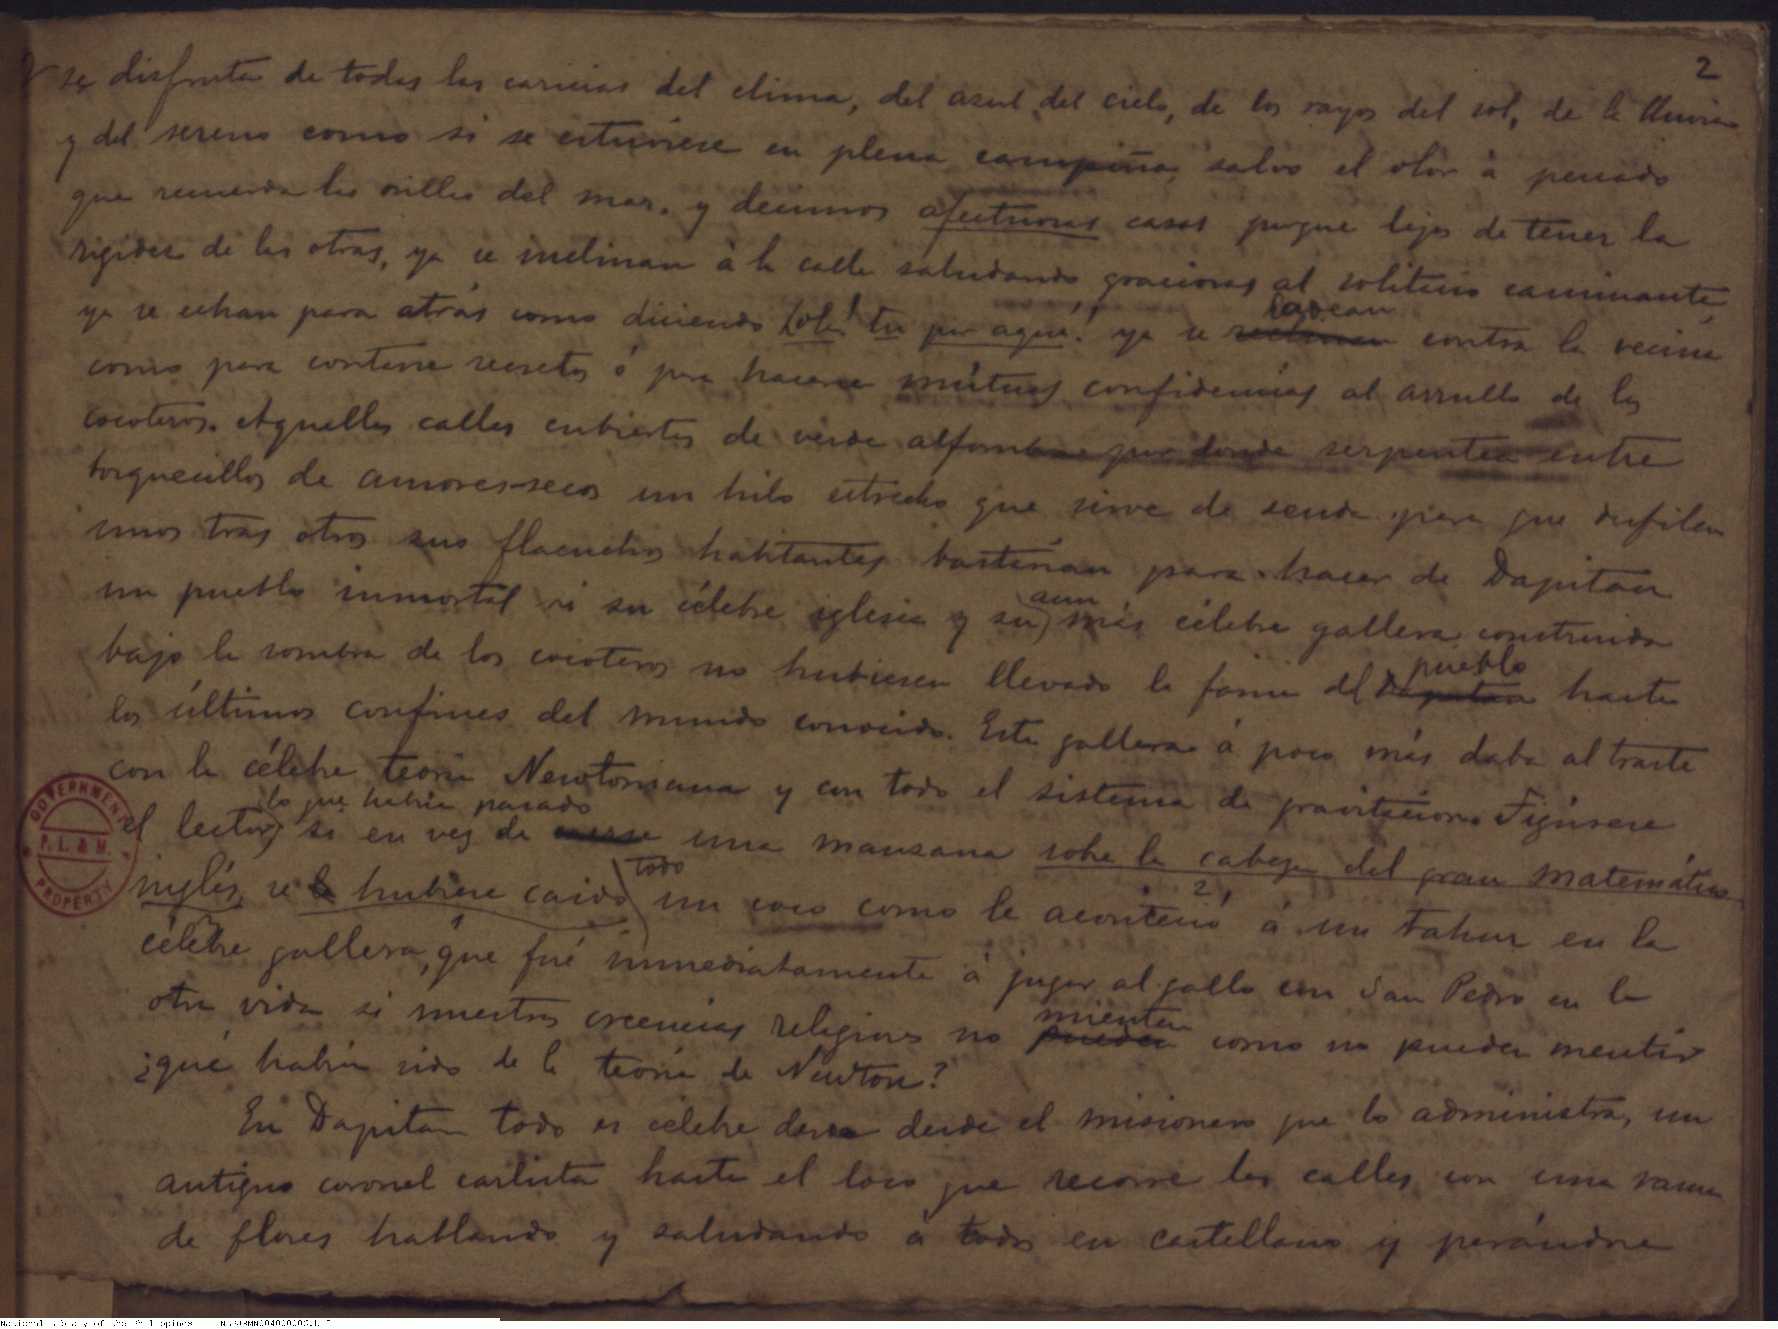 2
se disfruta de todas las caricias del clima, del azul del cielo, de los rayos del sol, de la lluvia
y del sereno como si se estuviese en plena campiña, salvo el olor á pescado
que recuerda las orillas del mar. y decimos afectuosas casas porque lejos de tener la
rigidez de las otras, ya se inclinan á la calle saludando graciosas al solitario caminante,
ya se echan para atrás como diciendo ¡ola! tu por aquí! ya se
ladean
contra la vecina
como para contarse secretos ó para hacerse mútuas confidencias al arrullo de los
cocoteros. Aquellas calles cubiertas de verde alfombra por donde serpentea entre
bosquecillos de amores-secos un hilo estrecho que sirve de senda para que desfilen
unos tras otros sus flacuchos habitantes bastarían para hacer de Dapitan
un pueblo inmortal si su célebre iglesia y su
aun
más célebre gallera construida
bajo la sombra de los cocoteros no hubiesen llevado la fama del
pueblo
Dapitan hasta
los últimos confines del mundo conocido. Esta gallera á poco más daba al traste
con la célebre teoría Newtoniana y con todo el sistema de gravitacion. Figúrese
lo que habría pasado
el lector, si en vez de caerse una manzana sobre la cabeza del gran matemático
inglés, se le hubiese caido
todo
un coco como le aconteció á un tahur en la
2
célebre gallera, que fué inmediatamente á jugar al gallo con San Pedro en la
otra vida si nuestras creencias religiosas no
mienten
pueden como no pueden mentir
¿qué habría sido de la teoría de Newton?
En Dapitan todo es célebre desde el misionero que lo administra, un
antiguo coronel carlista hasta el loco que recorre las calles con una rama
de flores hablando y saludando á todos en castellano y
GOVERNMENT
P.L. & M.
PROPERTY
National Library of the Philippines